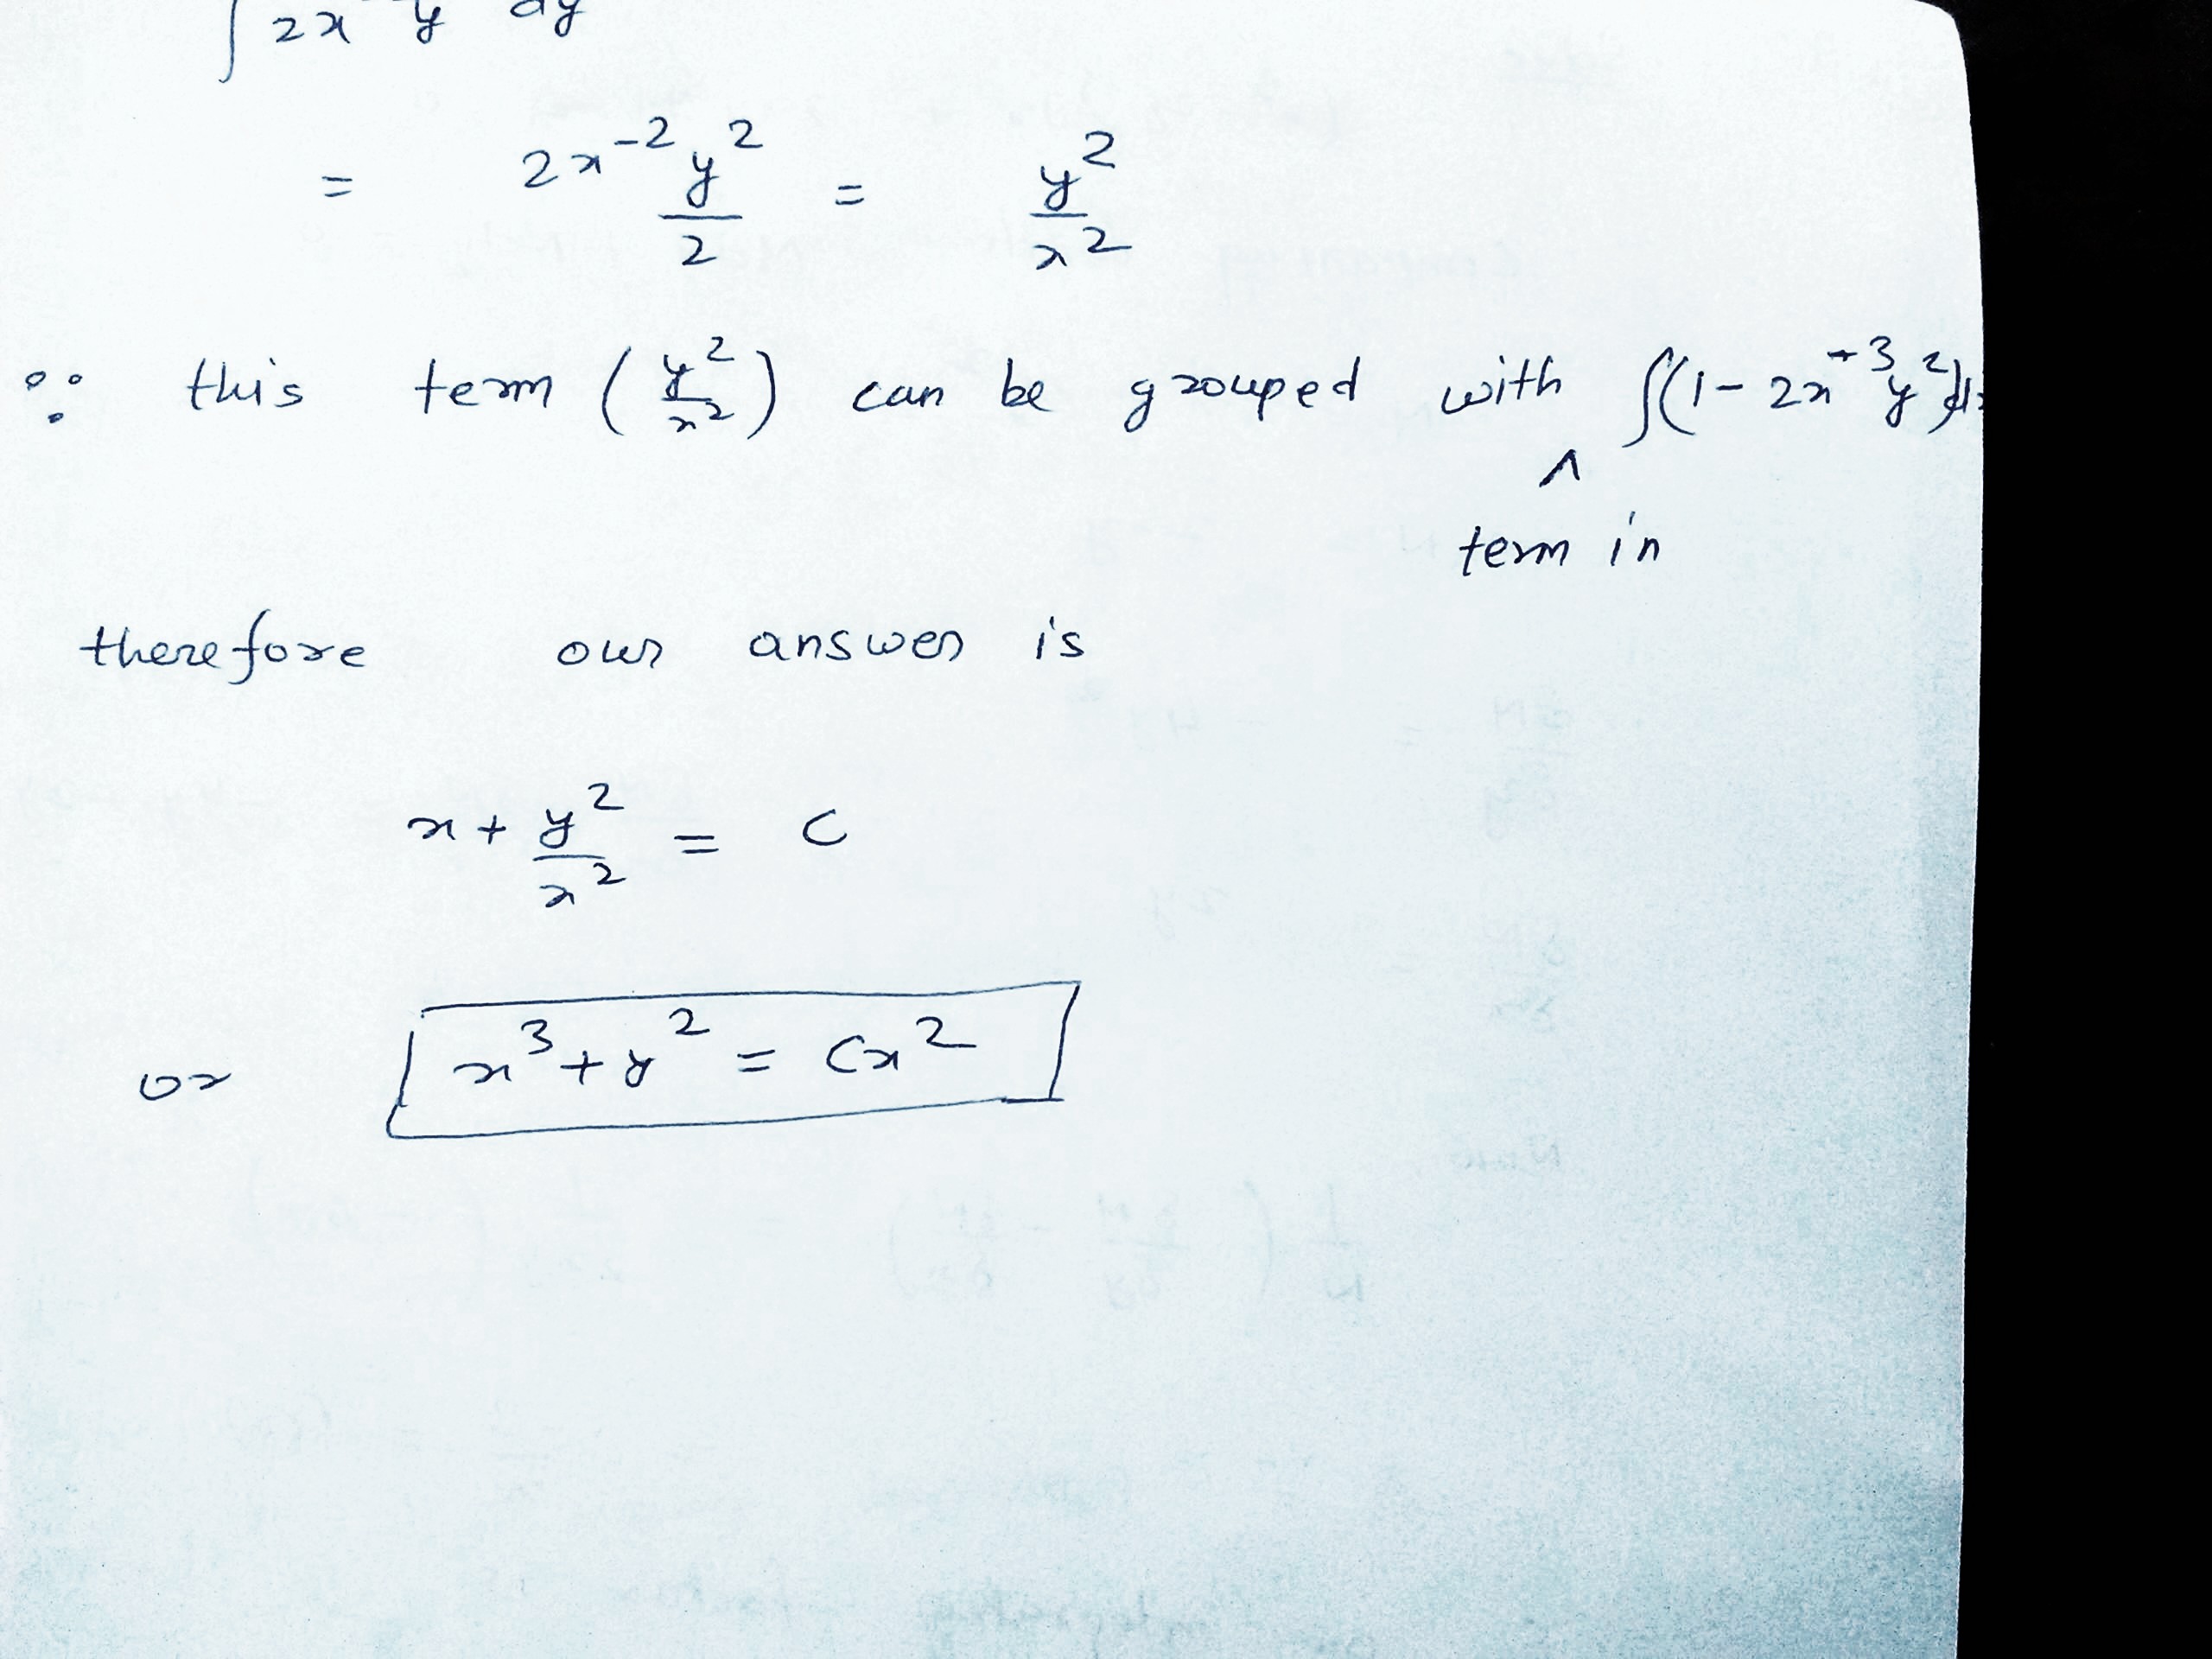 ∫ 2x y dy
= 2x⁻² y²/2 = y²/x²
∵ this term (y²/x²) can be grouped with ∫(1 - 2x⁻³y²)d
^
term in
therefore our answer is
x + y²/x² = C
or x³ + y² = Cx²